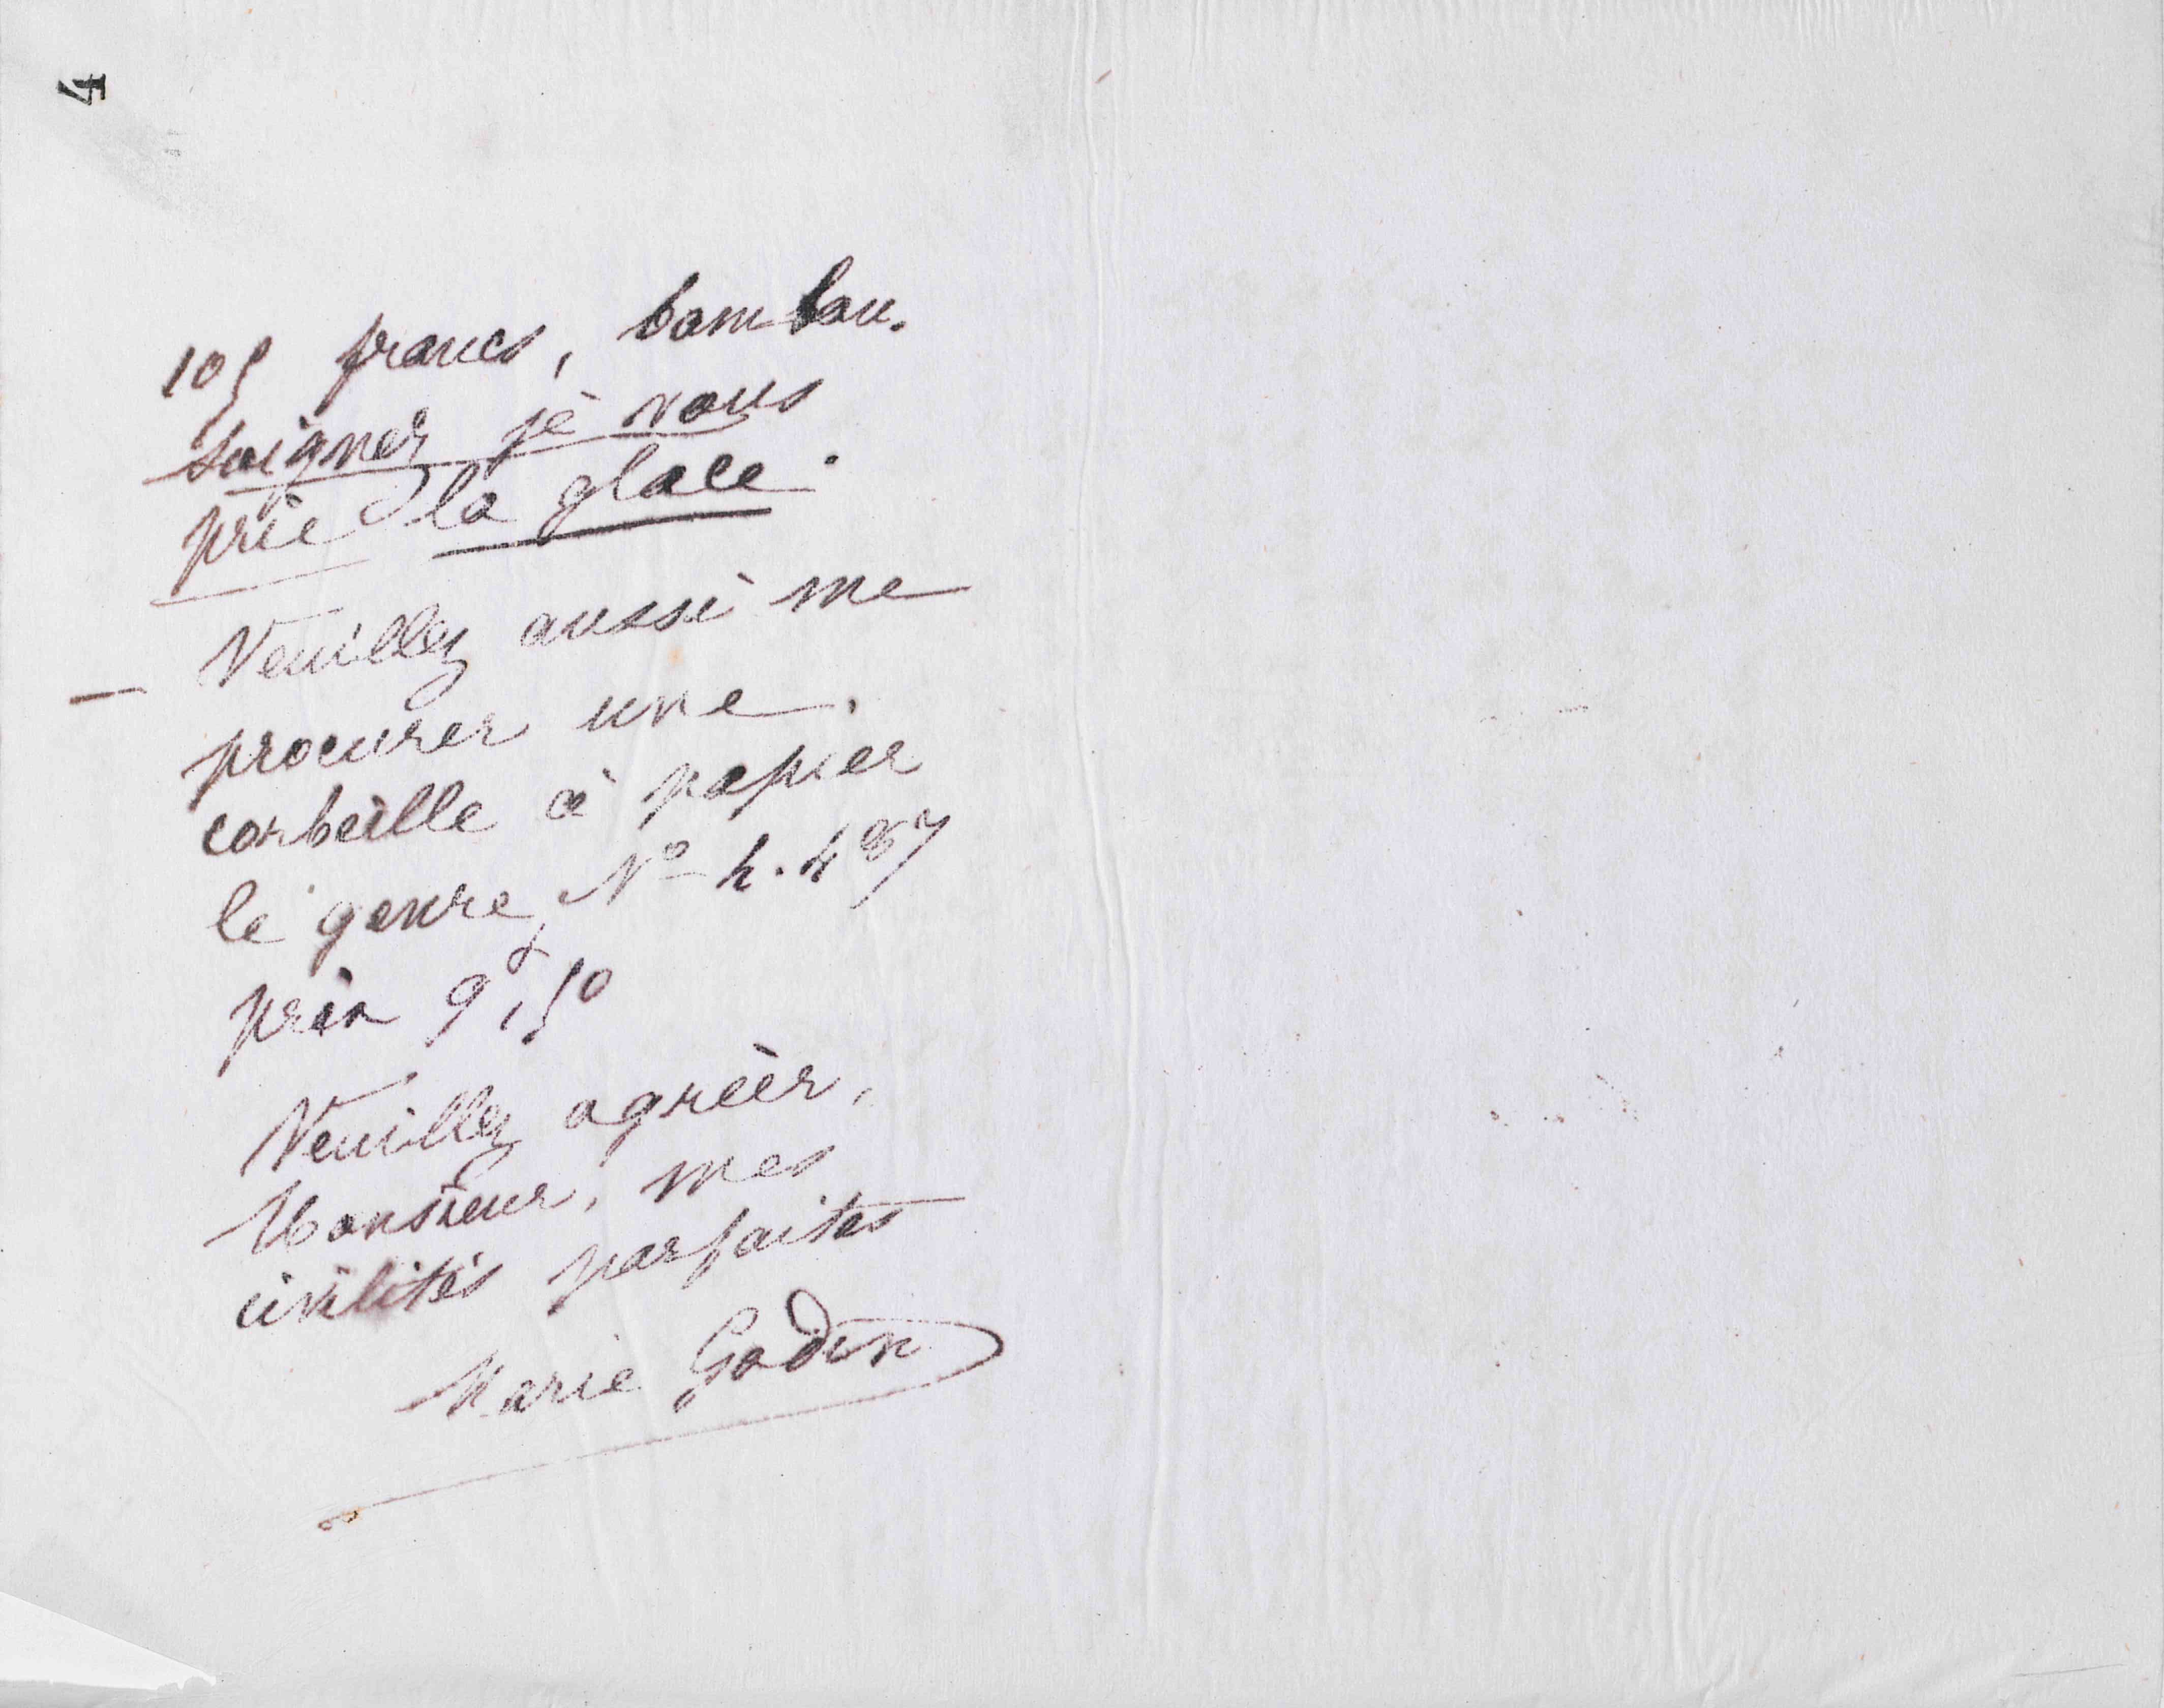 4
105 francs, bambou.
Soignez je vous
prie la glace.
— Veuillez aussi me
procurer une
corbeille à papier
le genre N° h. 487
prix 9f,50
Veuillez agréer,
Monsieur, mes
civilités parfaites
Marie Godin